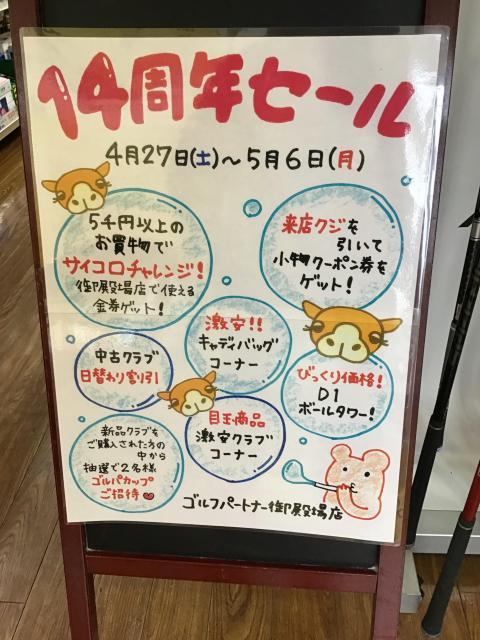 14周年セール
4月27日(土)～5月6日(月)
5千円以上の
お買物で
サイコロチャレンジ！
御殿場店で使える
金券ゲット！
来店クジを
引いて
小物クーポン券を
ゲット！
激安!!
キャディバッグ
コーナー
中古クラブ
日替わり割引
びっくり価格！
D1
ボールタワー！
目玉商品
激安クラブ
コーナー
新品クラブを
ご購入された方の
中から
抽選で2名様
ゴルパカップ
ご招待
ゴルフパートナー御殿場店